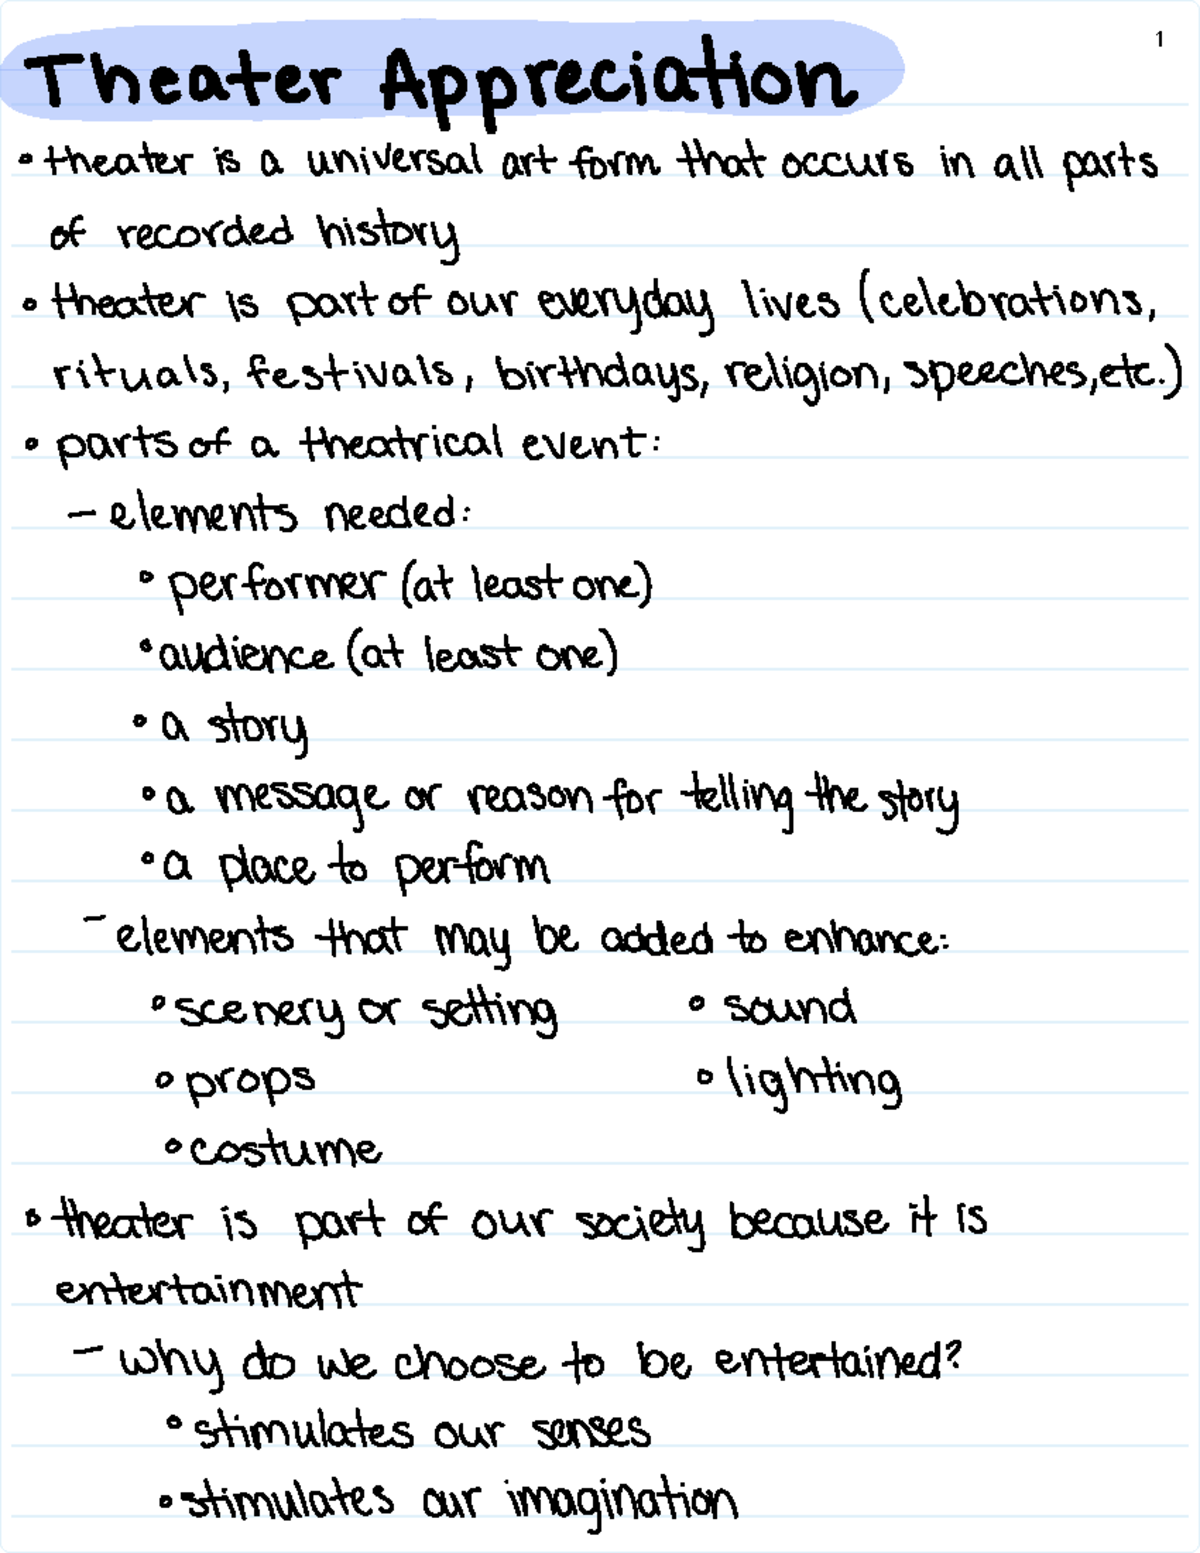 1
Theater Appreciation
• theater is a universal art form that occurs in all parts
of recorded history
• theater is part of our everyday lives (celebrations,
rituals, festivals, birthdays, religion, speeches, etc.)
• parts of a theatrical event:
– elements needed:
• performer (at least one)
• audience (at least one)
• a story
• a message or reason for telling the story
• a place to perform
– elements that may be added to enhance:
• scenery or setting • sound
• props • lighting
• costume
• theater is part of our society because it is
entertainment
– why do we choose to be entertained?
• stimulates our senses
• stimulates our imagination